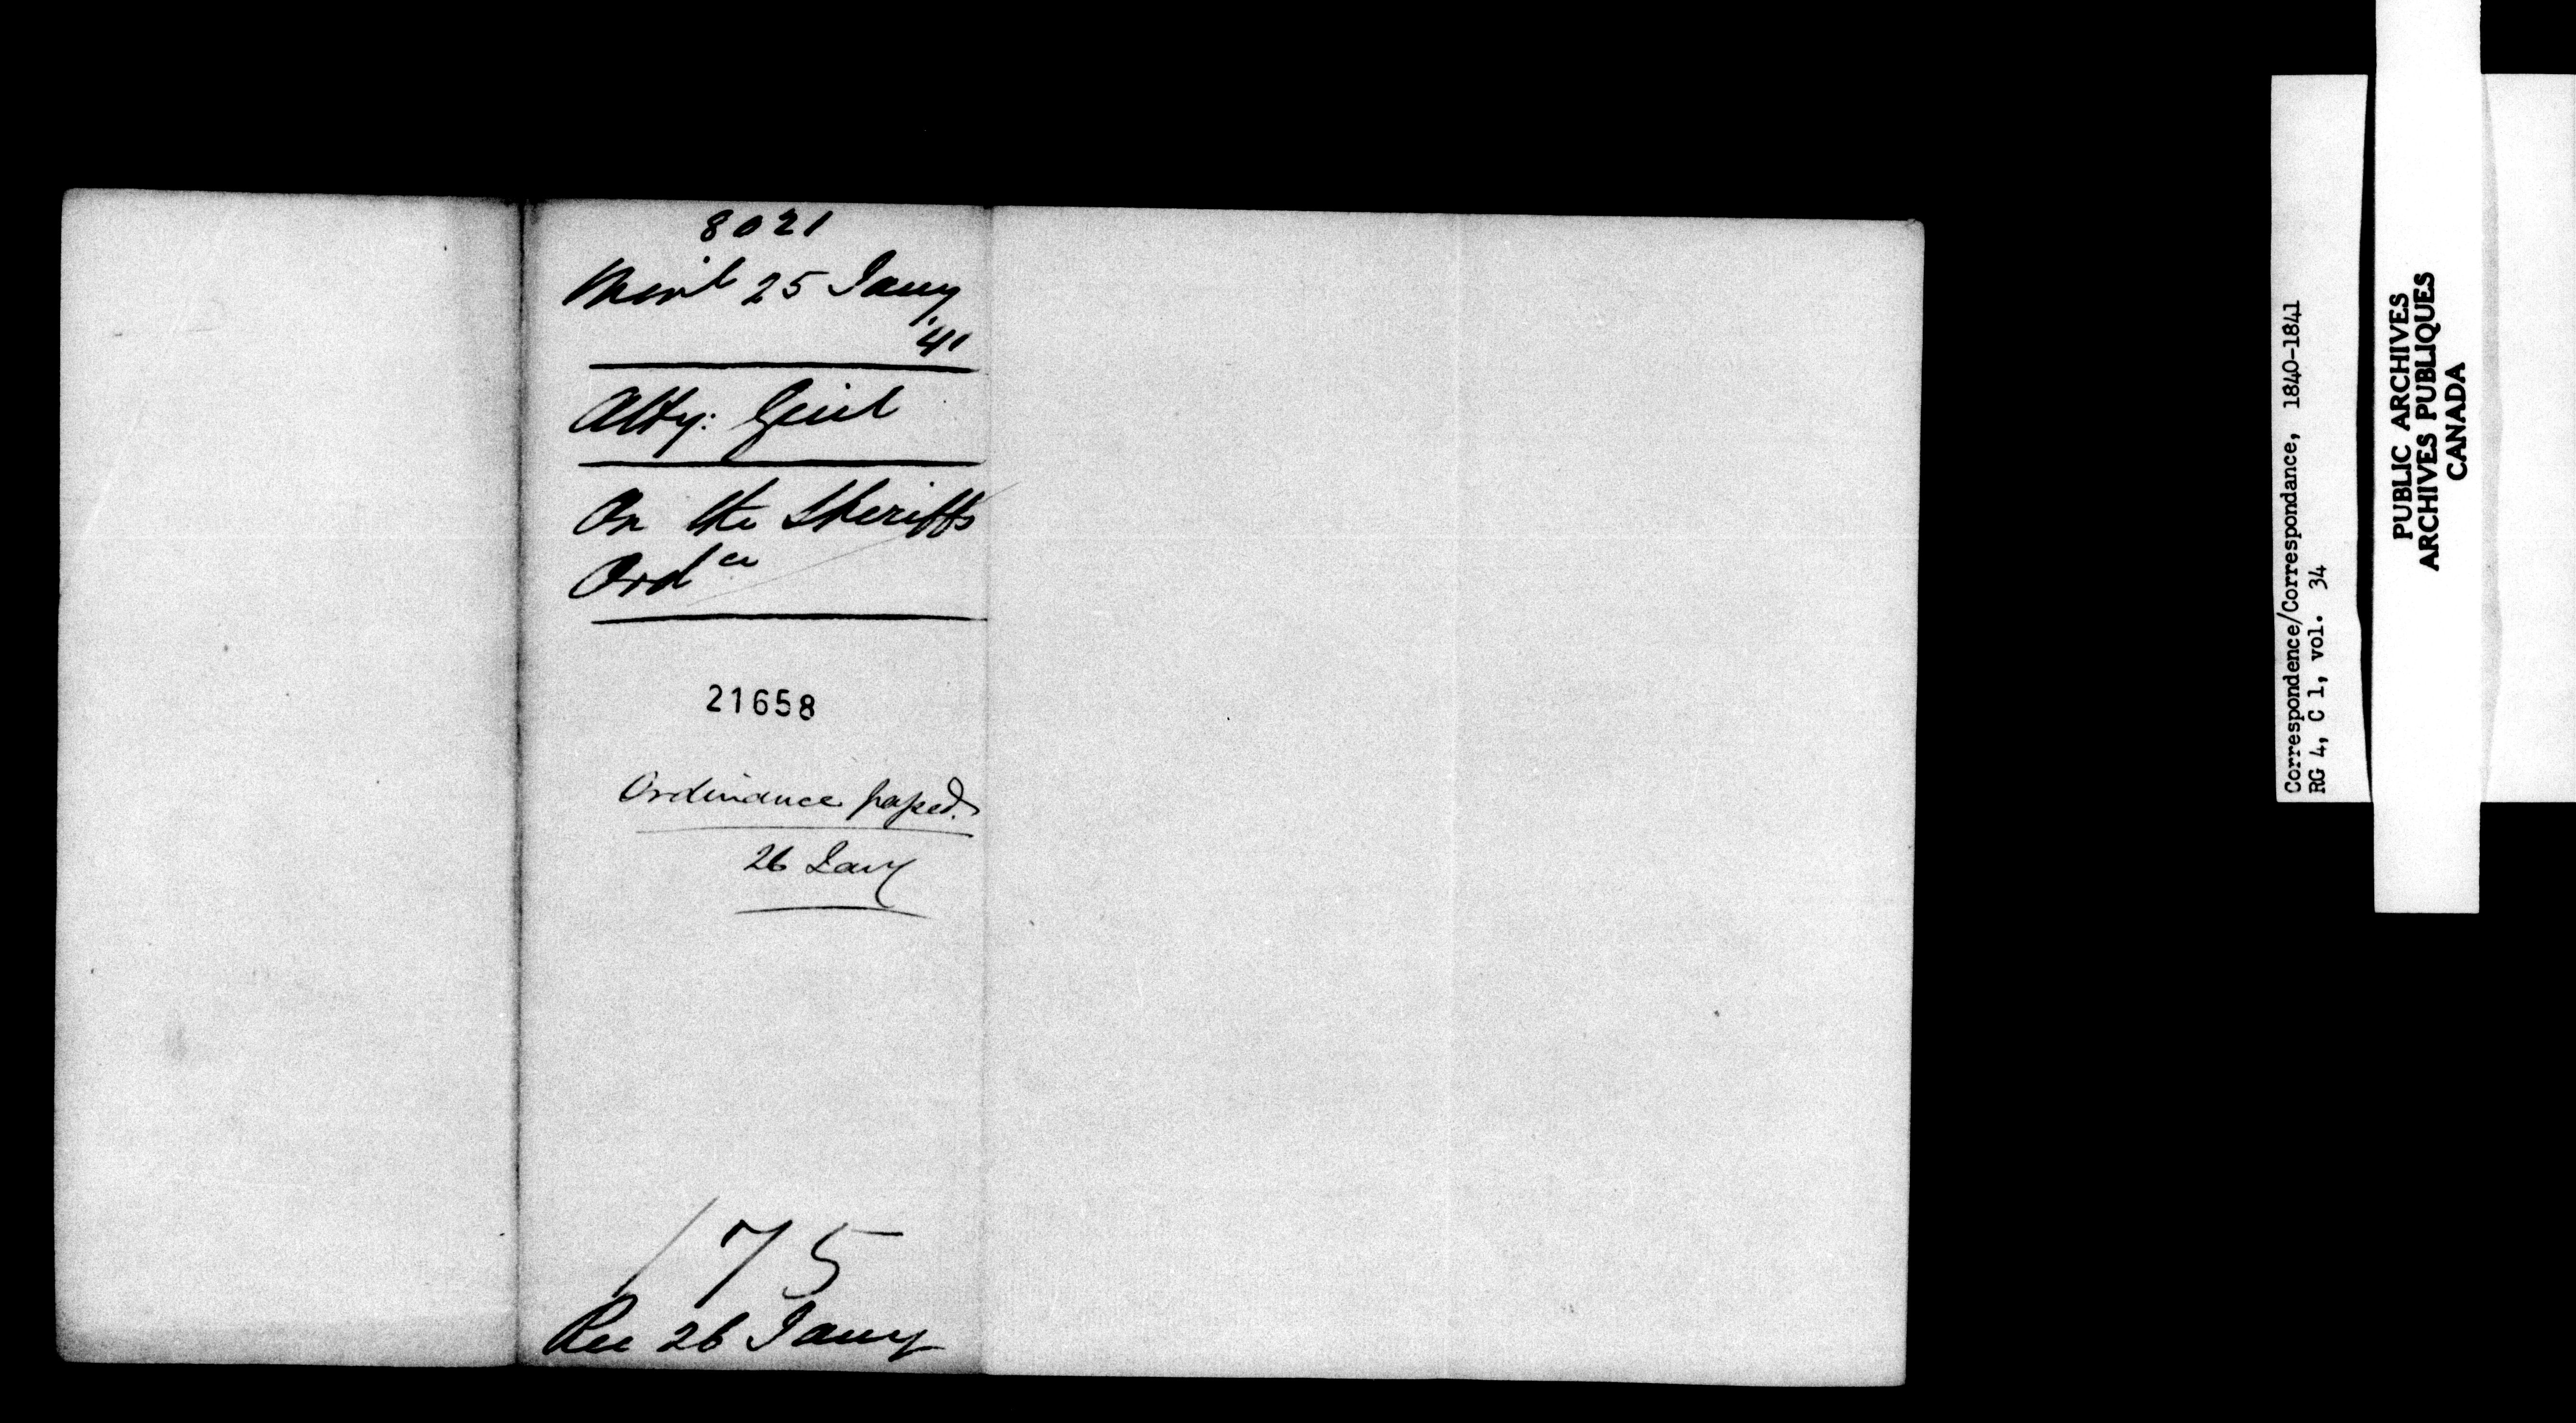 8021
Monl 25 Jany
'41
Atty: Genl
On the Sheriffs
Ordce
21658
Ordinance passed.
26 Jany
175
Rec 26 Jany
Correspondence/Correspondance, 1840-1841
RG 4, C 1, vol. 34
PUBLIC ARCHIVES
ARCHIVES PUBLIQUES
CANADA